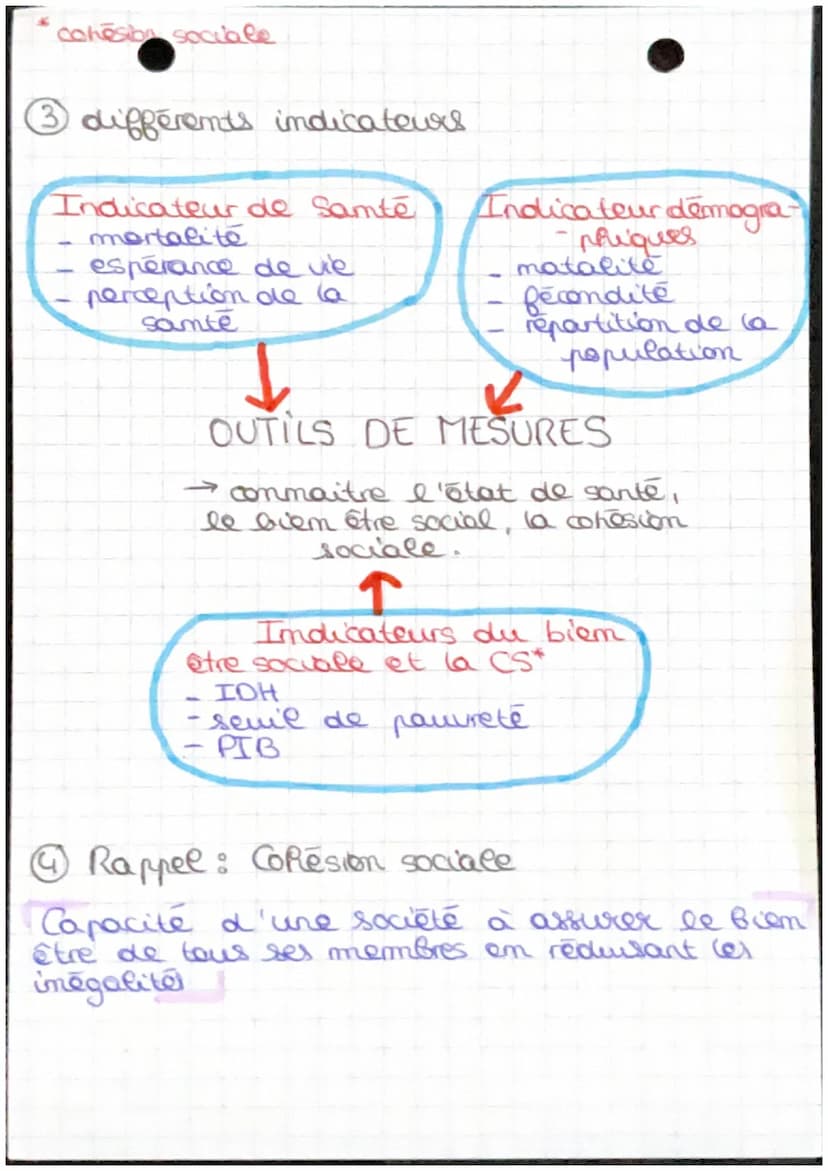 * cohésion sociale
③ différents indicateurs
Indicateur de Santé
- mortalité
- espérance de vie
- perception de la
santé
Indicateur démogra-
- phiques
- natalité
- fécondité
- répartition de la
population
OUTILS DE MESURES
→ connaitre l'état de santé,
le bien être social, la cohésion
sociale.
Indicateurs du bien
être sociale et la CS*
- IDH
- seuil de pauvreté
- PIB
④ Rappel : Cohésion sociale
Capacité d'une société à assurer le bien
être de tous ses membres en réduisant les
inégalités